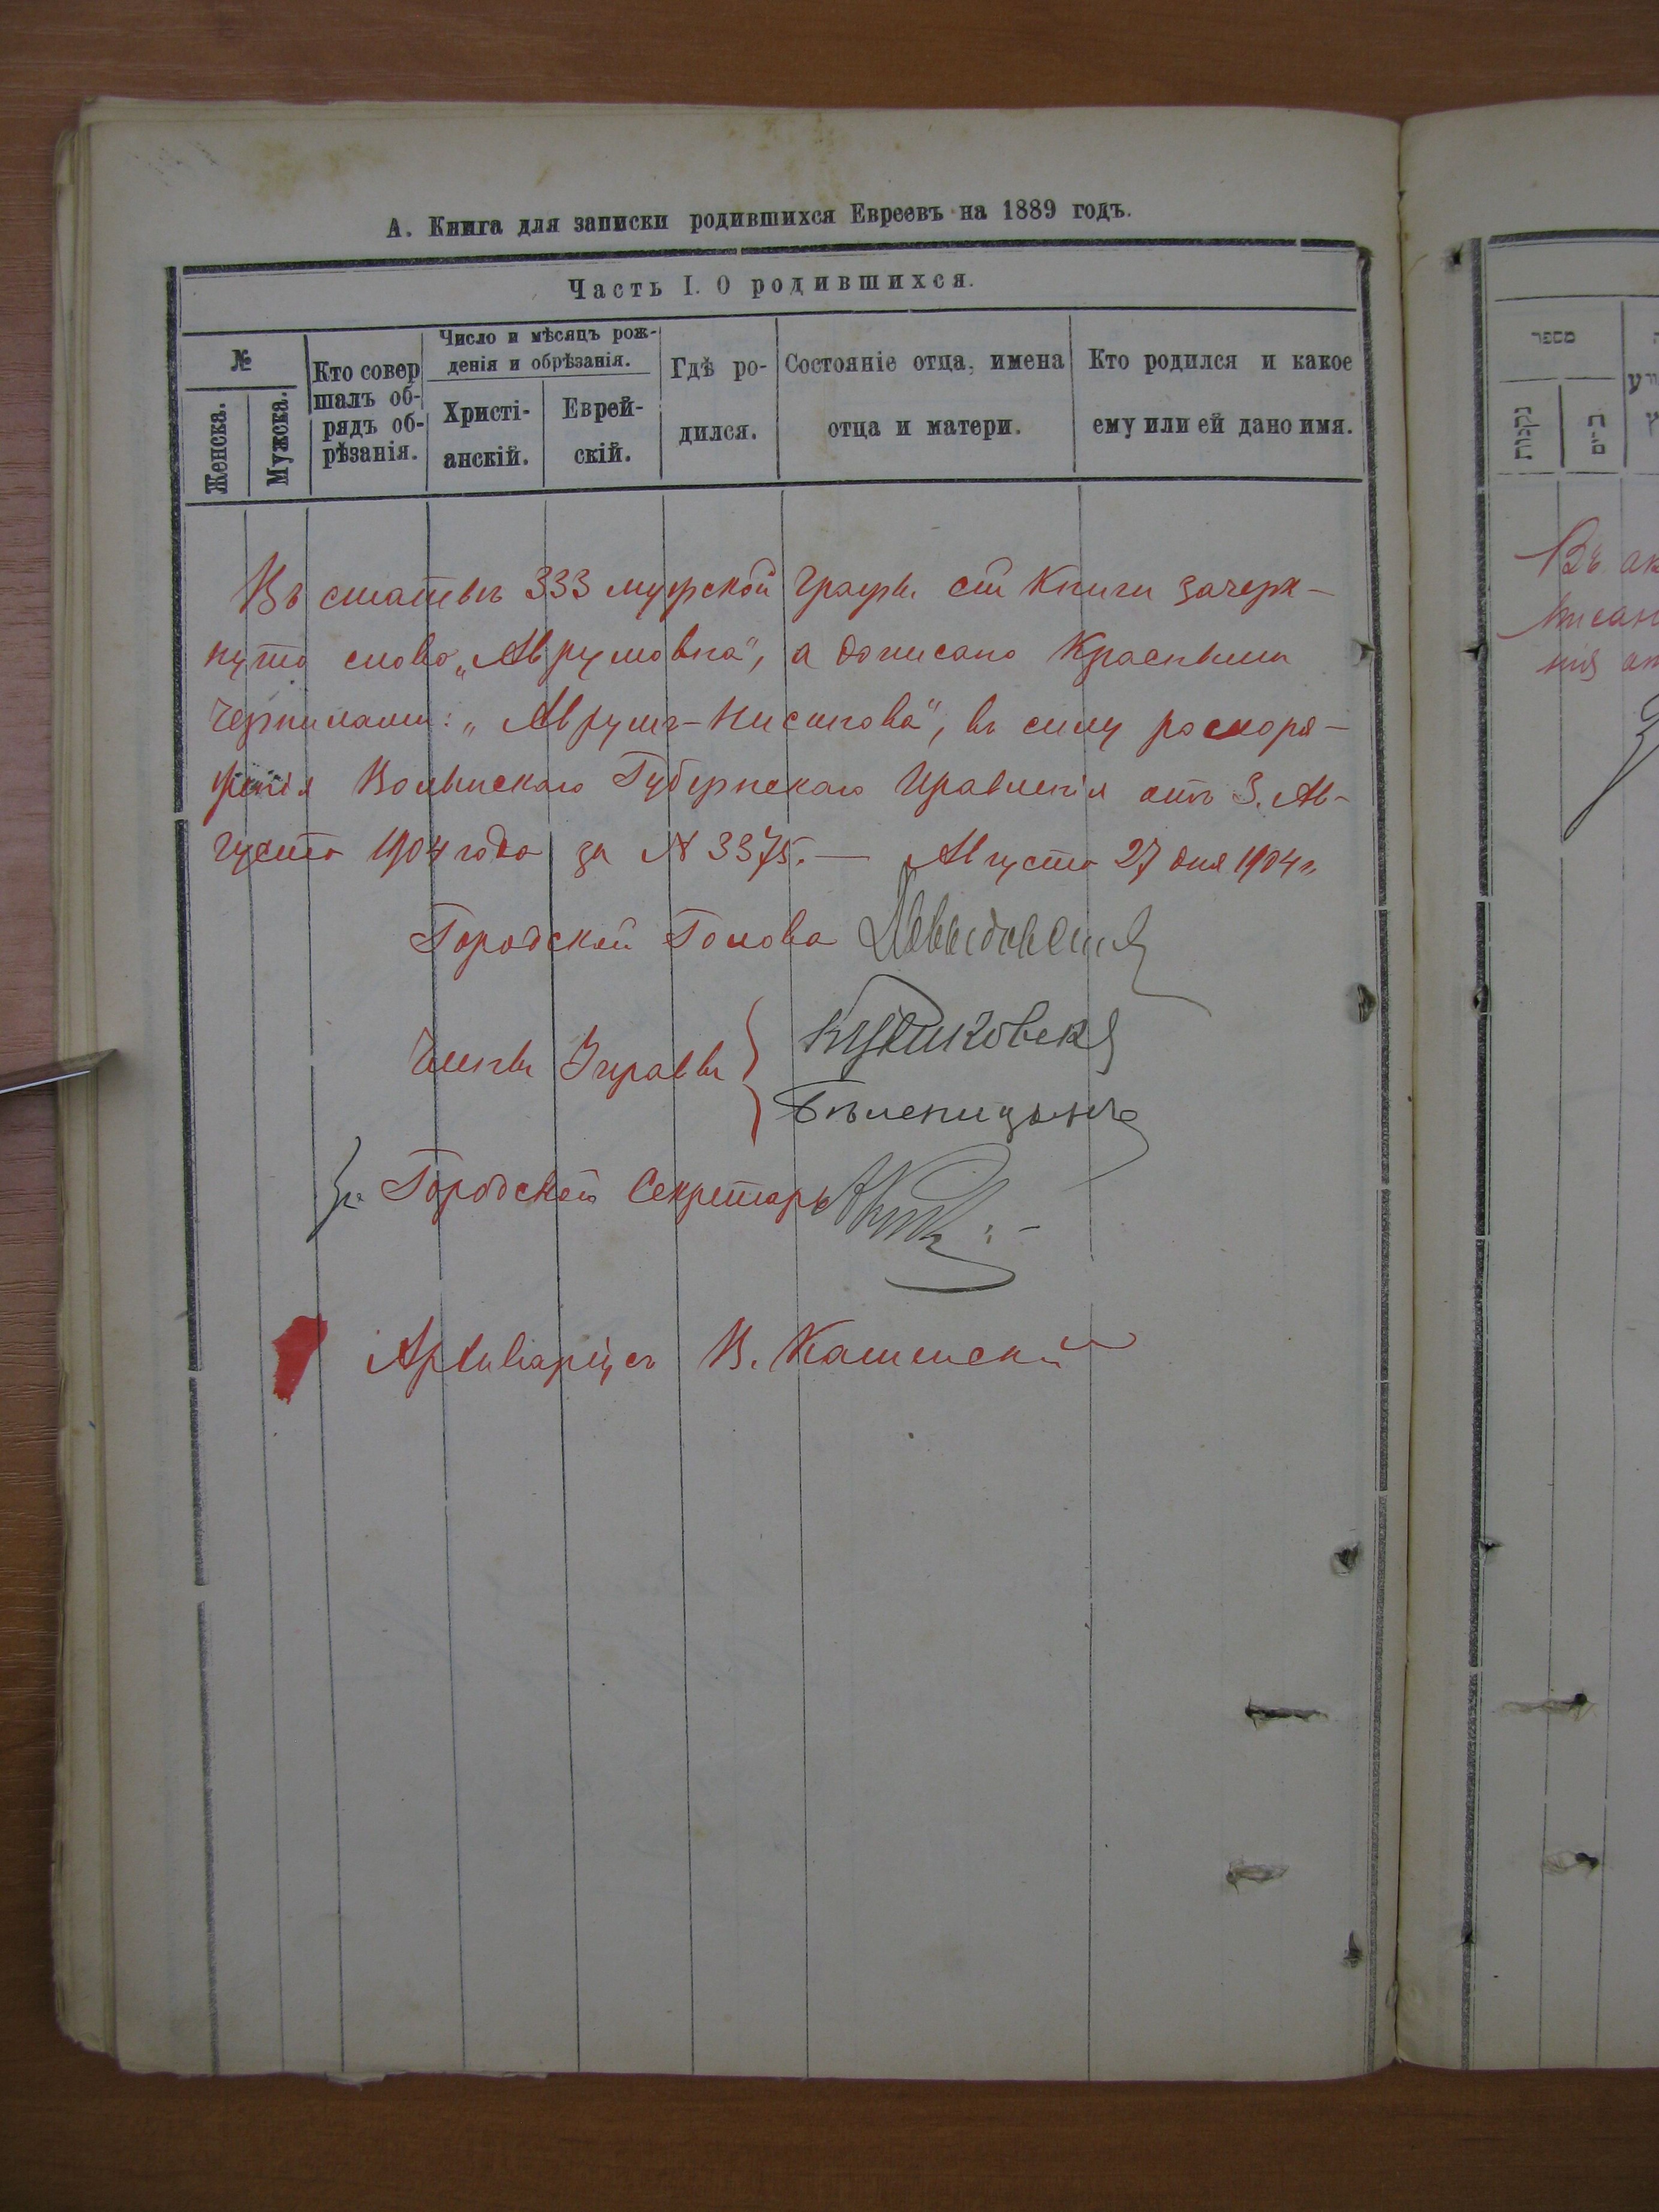 А. Книга для записки родившихся Евреевъ на 1889 годъ.
Часть I. О родившихся.
№
Женска.
Мужска.
Кто совер
шалъ об-
рядъ об-
рѣзанія.
Число и мѣсяцъ рож-
денія и обрѣзанія.
Христі-
анскій.
Еврей-
скій.
Гдѣ ро-
дился.
Состояніе отца, имена
отца и матери.
Кто родился и какое
ему или ей дано имя.
Въ статьѣ 333 мужской графы сей книги зачерк-
нуто слово „Аврумовна", а дописано красными
чернилами: „Аврумъ-Нисинова", въ силу распоря-
женія Волынскаго Губернскаго Правленія отъ 3. Ав-
густа 1904 года за № 3375. — Августа 27 дня 1904 г.
Городской Голова
Члены Управы
Бѣленицынъ
За Городской Секретарь
Архиваріусъ В. Каменскій
מספר
נקבות
זכרים
Въ